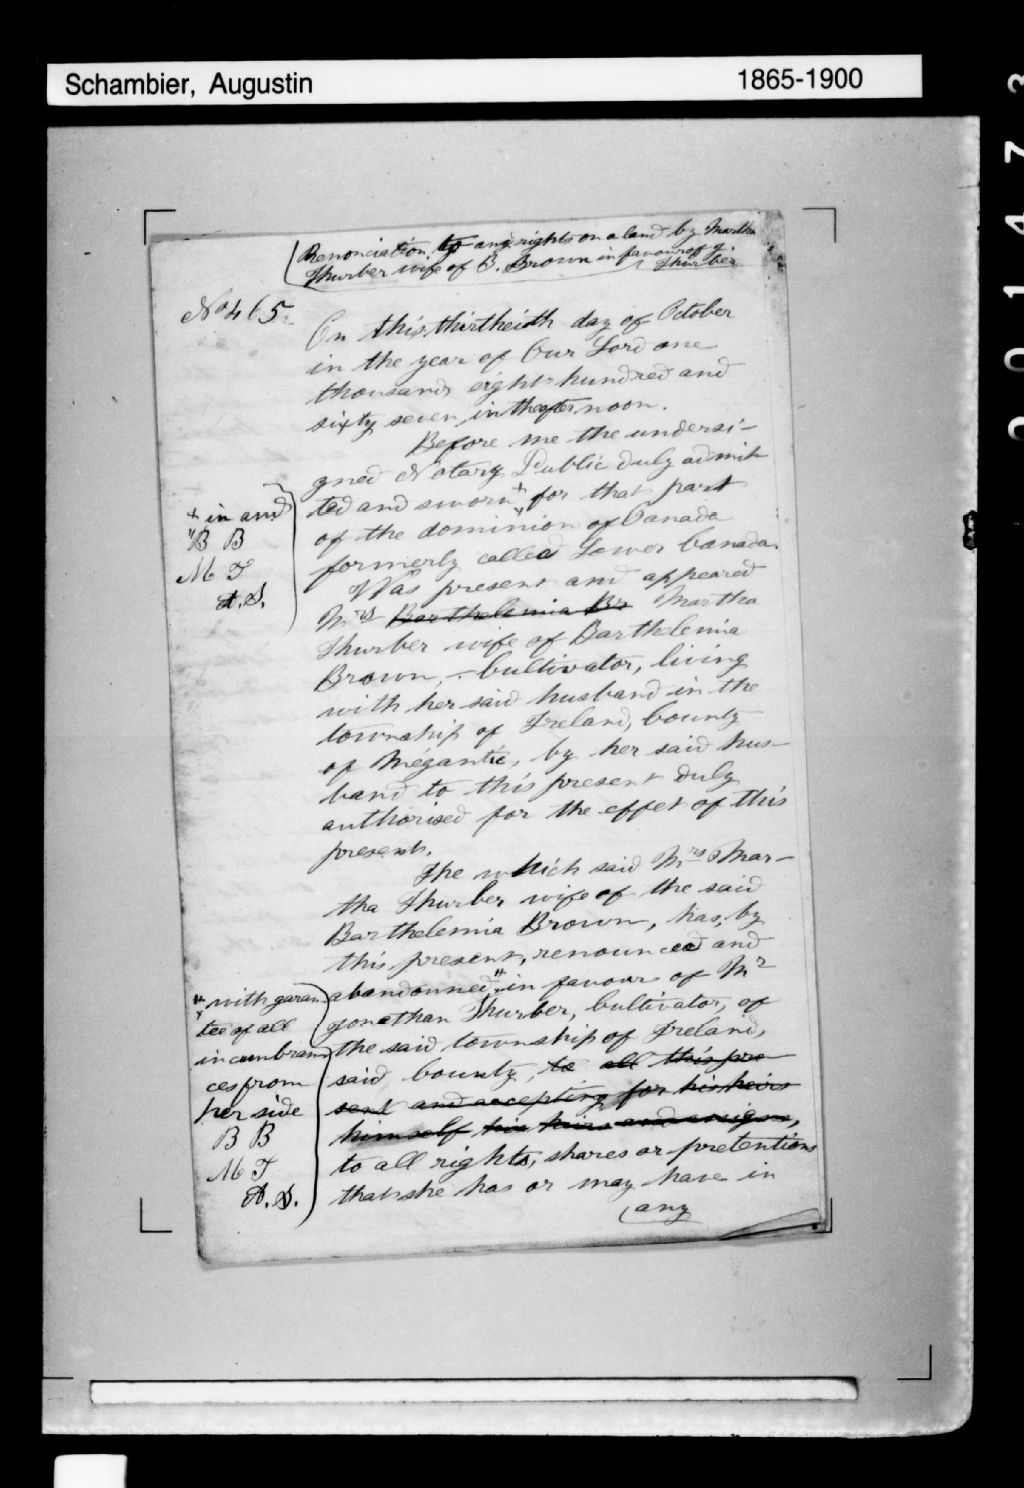 Schambier, Augustin 1865-1900
Renonciation to any rights on a land by Martha
Thurber wife of B. Brown in favour of J.
Thurber
No 465
On this thirtheisth day of October
in the year of Our Lord one
thousand eight hundred and
sixty seven, in the afternoon.
Before me the undersi-
gned Notary Public duly admit
ted and sworn + for that part
of the dominion of Canada
formerly called Lower Canada.
Was present and appeared
Mrs Barthelemia Br Martha
Thurber wife of Barthelemia
Brown, - Cultivator, living
with her said husband in the
township of Ireland, County
of Mégantic, by her said hus-
band to this present duly
authorised for the effet of this
present.
The which said Mrs Mar-
tha Thurber wife of the said
Barthelemia Brown, has, by
this present, renounced and
abandonned # in favour of Mr
Jonathan Thurber, Cultivator, of
the said township of Ireland,
said County, to all this pre
sent and accepting for his heirs
himself his heirs and assigns,
to all rights, shares or pretentions
that she has or may have in
any
+ in and
B B
M T
A. S.
# with garan
tee of all
incumbran
ces from
her side
B B
M T
A. S.
201473